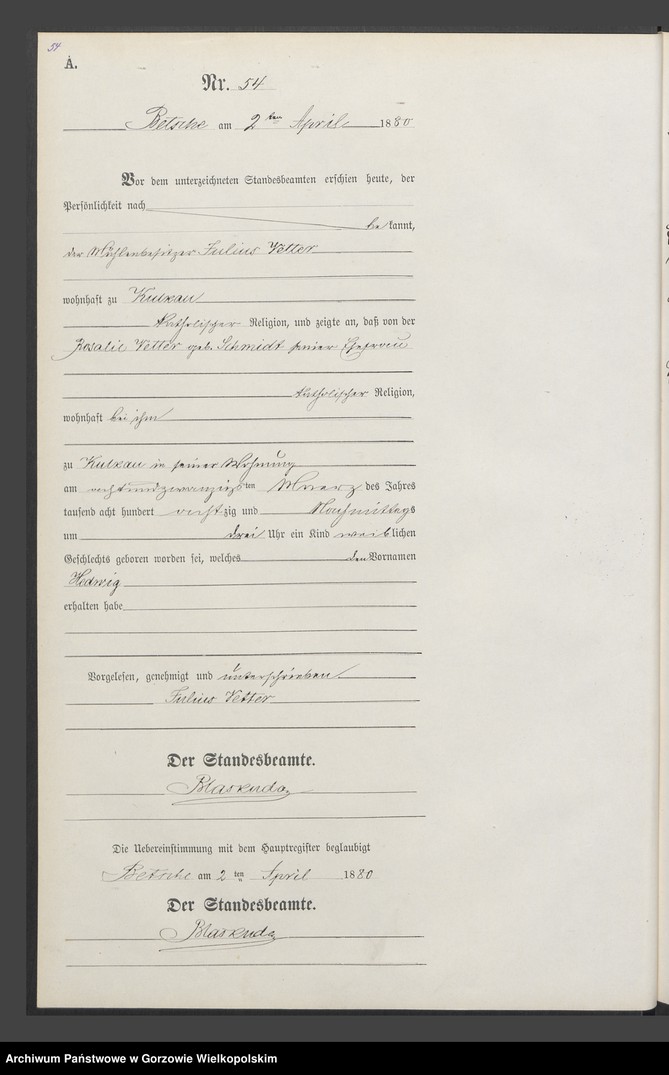 54
A.
Nr. 54
Betsche am 2 ten April 1880
Vor dem unterzeichneten Standesbeamten erschien heute, der
Persönlichkeit nach
bekannt,
der Mühlenbesitzer Julius Vetter
wohnhaft zu Kulkau
katholischer Religion, und zeigte an, daß von der
Rosalie Vetter geb. Schmidt seiner Ehefrau
katholischer Religion,
wohnhaft bei ihm
zu Kulkau in seiner Wohnung
am achtundzwanzigsten Maerz des Jahres
tausend acht hundert achtzig und Nachmittags
um drei Uhr ein Kind weiblichen
Geschlechts geboren worden sei, welches den Vornamen
Hedwig
erhalten habe
Vorgelesen, genehmigt und unterschrieben
Julius Vetter
Der Standesbeamte.
Blaskuda
Die Uebereinstimmung mit dem Hauptregister beglaubigt
Betsche am 2 ten April 1880
Der Standesbeamte.
Blaskuda
Archiwum Państwowe w Gorzowie Wielkopolskim